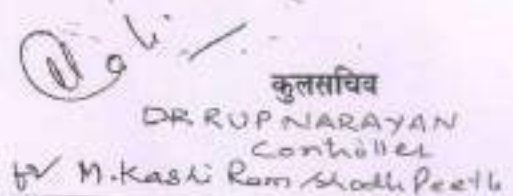 कुलसचिव
DR RUP NARAYAN
Controller
for M. Kashi Ram Shodh Peeth